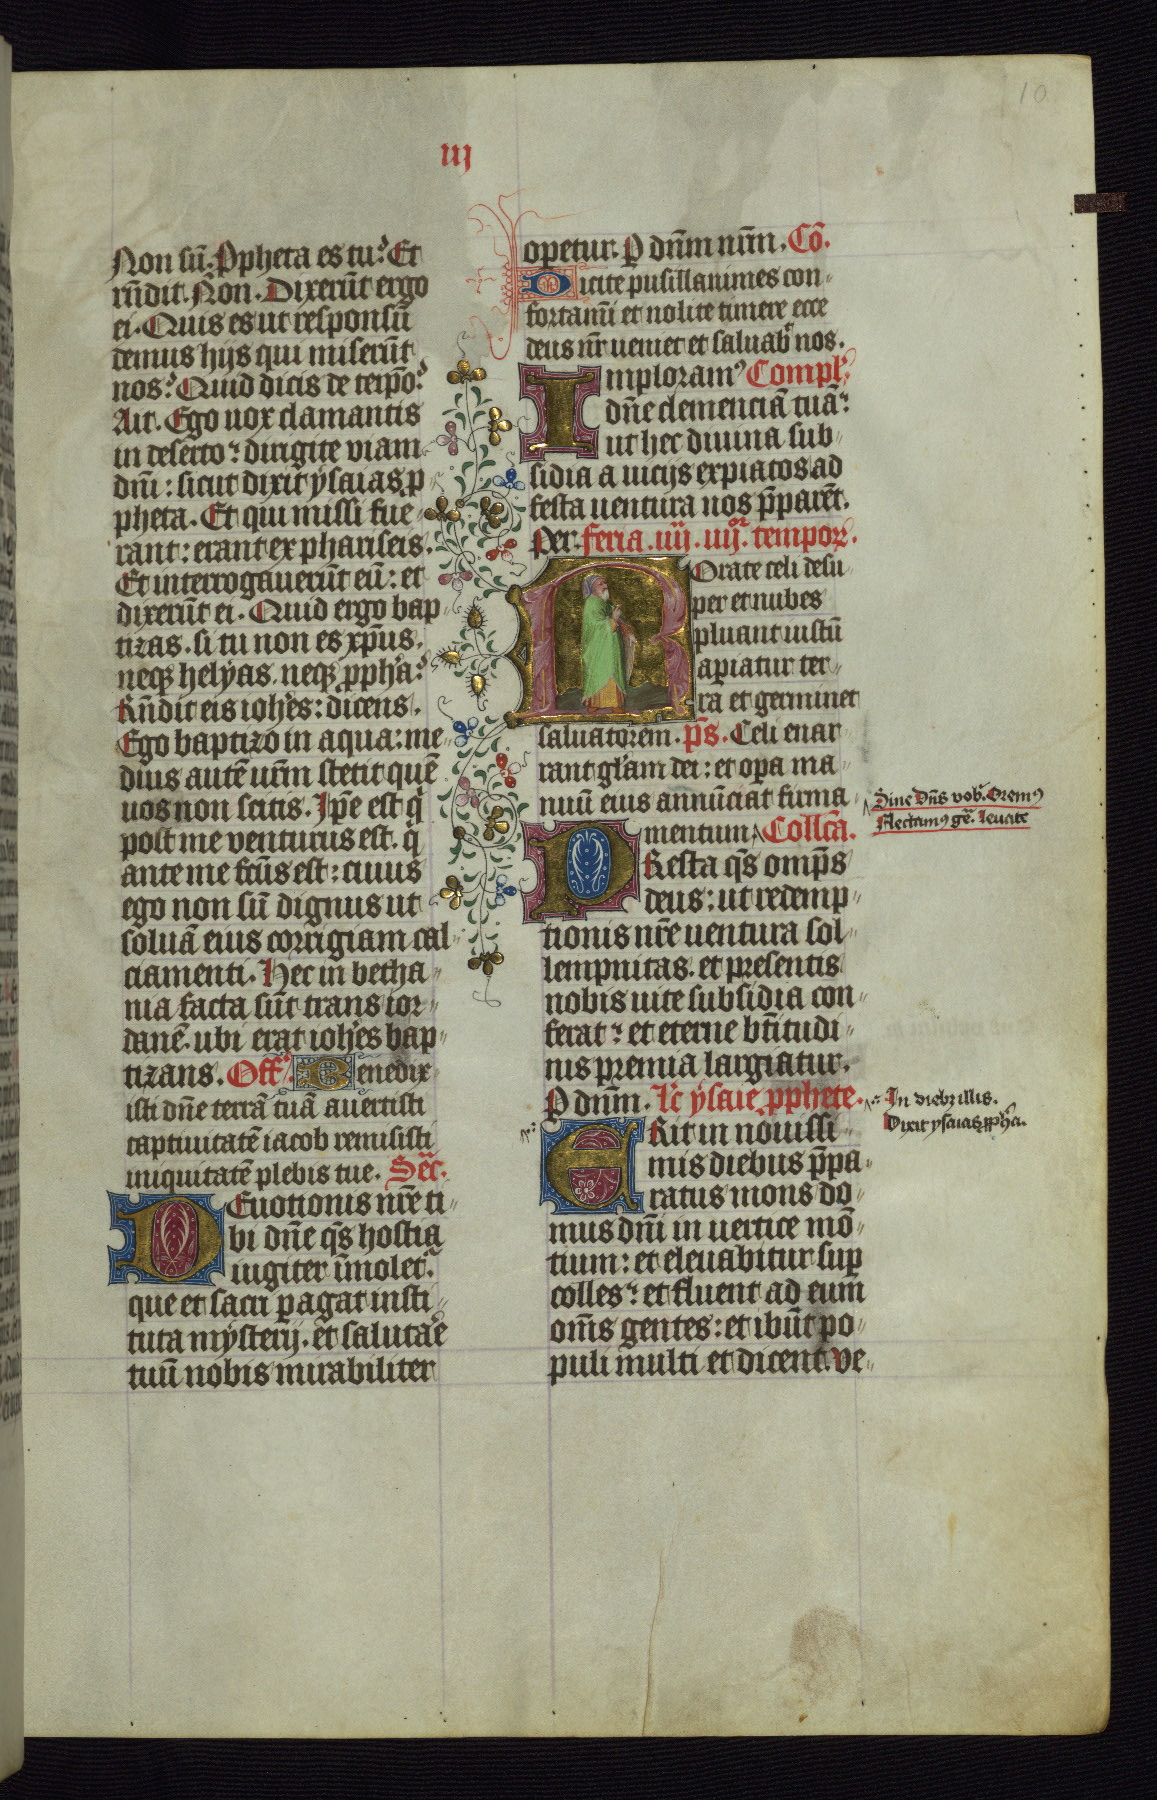 10
iij
Non sū. Ppheta es tu? Et
rn̄dit. Non. Dixerūt ergo
ei. Quis es ut responsū
demus hijs qui miserūt
nos? Quid dicis de teip̄o?
Ait. Ego uox clamantis
in deserto: dirigite viam
dn̄i: sicut dixit ysaias p
pheta. Et qui missi fue
rant: erant ex phariseis.
Et interrogauerūt eū: et
dixerūt ei. Quid ergo bap
tizas. si tu non es xp̄us.
neq; helyas. neq; ppha?
Rn̄dit eis ioh̄es: dicens.
Ego baptizo in aqua: me
dius autē ur̄m stetit quē
uos non scitis. Ip̄e est q̄
post me venturus est. q̄
ante me fc̄us est: cuius
ego non sū dignus ut
soluā eius corrigiam cal
ciamenti. Hec in betha
nia facta sūt trans ior
danē. ubi erat ioh̄es bap
tizans. Off. Benedix
isti dn̄e terrā tuā auertisti
captiuitatē iacob remisisti
iniquitatē plebis tue. Sec̄.
Deuotionis nr̄e ti
bi dn̄e qs̄ hostia
iugiter īmolet.
que et sacri pagat insti
tuta mysterij. et salutare
tuū nobis mirabiliter
opetur. P dn̄m nr̄m. Cō.
Dicite pusillanimes con
fortamī et nolite timere ecce
deus nr̄ ueniet et saluab nos.
Imploram9 Compl.
dn̄e clemenciā tuā:
ut hec diuina sub
sidia a uicijs expiatos ad
festa uentura nos p̄parēt.
Per. feria. iiij. iiijor. tempor.
Rorate celi desu
per et nubes
pluant iustū
apiatur ter
ra et germinet
saluatorem. ps̄. Celi enar
rant glām dei: et opa ma
nuū eius annūciat firma
mentum. Collc̄a.
PResta qs̄ omps̄
deus: ut redemp
tionis nr̄e uentura sol
lempnitas. et presentis
nobis uite subsidia con
ferat: et eterne btītudi
nis premia largiatur.
P dn̄m. lc̄ ysaie pphete.
ERit in nouissi
mis diebus p̄pa
ratus mons do
mus dn̄i in uertice mō
tium: et eleuabitur sup
colles: et fluent ad eum
om̄s gentes: et ibūt po
puli multi et dicent. Ve
Sine Dn̄s vob. Orem9
Flectam9 gē. leuate
In diebz illis.
Dixit ysaias ppha.